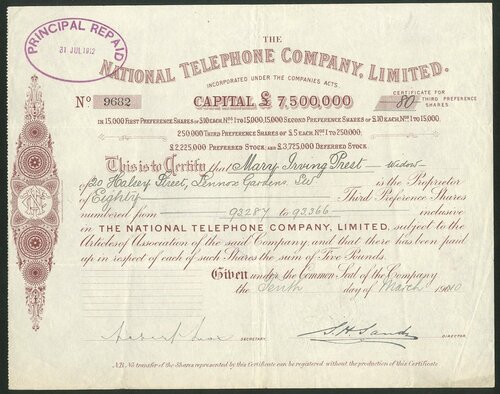 PRINCIPAL REPAID
31 JUL 1912
THE
NATIONAL TELEPHONE COMPANY, LIMITED.
INCORPORATED UNDER THE COMPANIES ACTS.
No 9682
CAPITAL £ 7,500,000
CERTIFICATE FOR
80 THIRD PREFERENCE
SHARES
IN 15,000 FIRST PREFERENCE SHARES OF £10 EACH, Nos 1 TO 15,000, 15,000 SECOND PREFERENCE SHARES OF £10 EACH, Nos 1 TO 15,000.
250,000 THIRD PREFERENCE SHARES OF £5 EACH Nos 1 TO 250,000;
£2,225,000 PREFERRED STOCK AND £3,725,000 DEFERRED STOCK.
This is to Certify that Mary Irving Prest Widow
of 20 Halsey Street, Lennox Gardens SW is the Proprietor
of Eighty Third Preference Shares
numbered from 93287 to 93366 inclusive
in THE NATIONAL TELEPHONE COMPANY, LIMITED. subject to the
Articles of Association of the said Company and that there has been paid
up in respect of each of such Shares the sum of Five Pounds.
Given under the Common Seal of the Company
the Tenth day of March 1910
SECRETARY
DIRECTOR
N.B. No transfer of the Shares represented by this Certificate can be registered without the production of this Certificate.